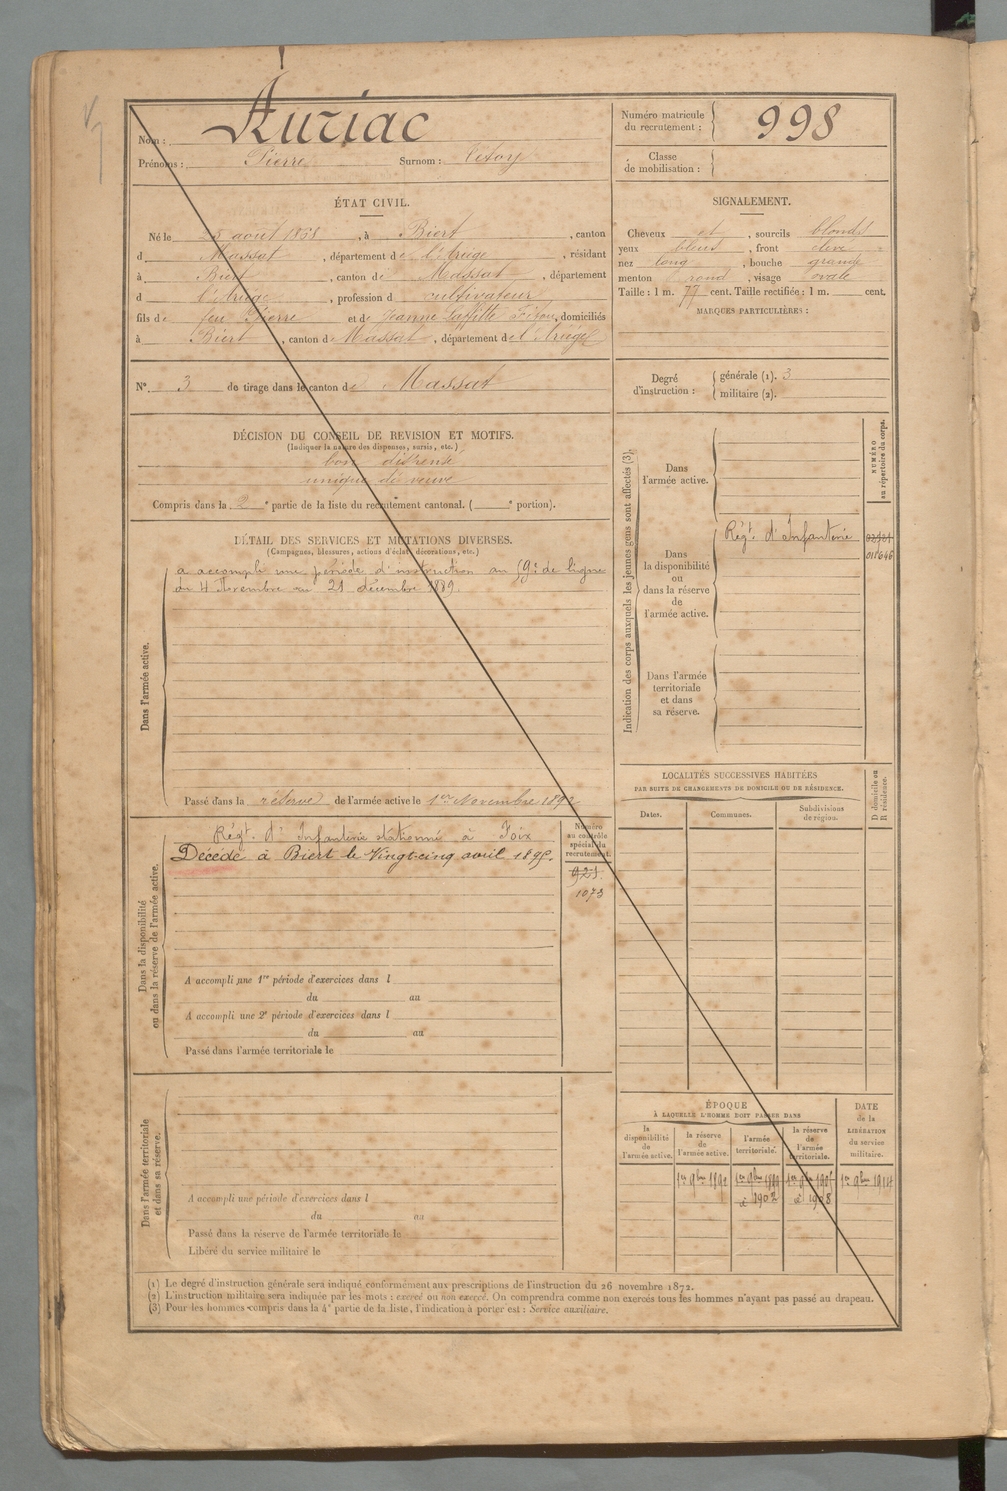 Nom : Auriac
Prénoms : Pierre Surnom :
Numéro matricule du recrutement : 998
Classe de mobilisation :
ÉTAT CIVIL.
Né le août 1868, à Biert, canton
d Massat, département de l'Ariège, résidant
à Biert, canton de Massat, département
d l'Ariège, profession d cultivateur
fils de feu Pierre et de Jeanne Laffitte, domiciliés
à Biert, canton de Massat, département de l'Ariège
N° 3 de tirage dans le canton de Massat
SIGNALEMENT.
Cheveux et, sourcils blonds
yeux bleus, front élevé
nez long, bouche grande
menton rond, visage ovale
Taille : 1 m. 77 cent. Taille rectifiée : 1 m. cent.
MARQUES PARTICULIÈRES :
Degré d'instruction : générale (1). 3
militaire (2).
DÉCISION DU CONSEIL DE REVISION ET MOTIFS.
(Indiquer la nature des dispenses, sursis, etc.)
bon dispensé
unique de veuve
Compris dans la 2e partie de la liste du recrutement cantonal. ( e portion).
DÉTAIL DES SERVICES ET MUTATIONS DIVERSES.
(Campagnes, blessures, actions d'éclat, décorations, etc.)
Dans l'armée active.
a accompli une période d'instruction au 59e de ligne
du 4 Novembre au 21 décembre 1889.
Passé dans la réserve de l'armée active le 1er Novembre 1892
Dans la disponibilité ou dans la réserve de l'armée active.
Régt. d'Infanterie stationné à Foix
Décédé à Biert le Vingt-cinq avril
Numéro au contrôle spécial du recrutement.
921
1073
A accompli une 1re période d'exercices dans l
du au
A accompli une 2e période d'exercices dans l
du au
Passé dans l'armée territoriale le
Dans l'armée territoriale et dans sa réserve.
A accompli une période d'exercices dans l
du au
Passé dans la réserve de l'armée territoriale le
Libéré du service militaire le
Indication des corps auxquels les jeunes gens sont affectés (3).
NUMÉRO au répertoire du corps.
Dans l'armée active.
Dans la disponibilité ou dans la réserve de l'armée active.
Régt. d'Infanterie
Dans l'armée territoriale et dans sa réserve.
LOCALITÉS SUCCESSIVES HABITÉES
PAR SUITE DE CHANGEMENTS DE DOMICILE OU DE RÉSIDENCE.
Dates. Communes. Subdivisions de région. D domicile ou R résidence.
ÉPOQUE
À LAQUELLE L'HOMME DOIT PASSER DANS
DATE de la LIBÉRATION du service militaire.
la disponibilité de l'armée active. la réserve de l'armée active. l'armée territoriale. la réserve de l'armée territoriale.
1er 9bre 1892 1er 9bre 1er 9bre 1er 9bre 1914
à 1902 à 1908
(1) Le degré d'instruction générale sera indiqué conformément aux prescriptions de l'instruction du 26 novembre 1872.
(2) L'instruction militaire sera indiquée par les mots : exercé ou non exercé. On comprendra comme non exercés tous les hommes n'ayant pas passé au drapeau.
(3) Pour les hommes compris dans la 4e partie de la liste, l'indication à porter est : Service auxiliaire.